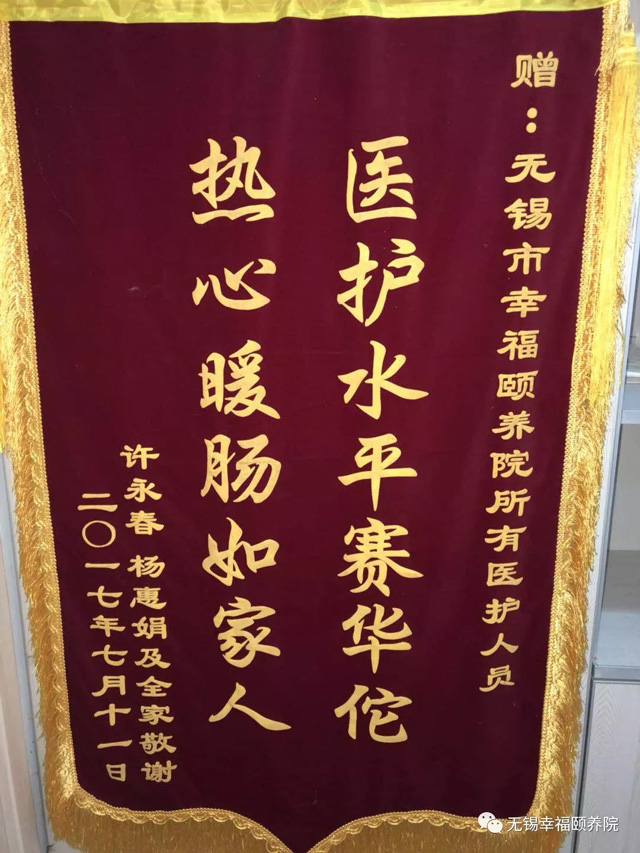 赠：无锡市幸福颐养院所有医护人员
医护水平赛华佗
热心暖肠如家人
许永春 杨惠娟及全家敬谢
二〇一七年七月十一日
无锡幸福颐养院